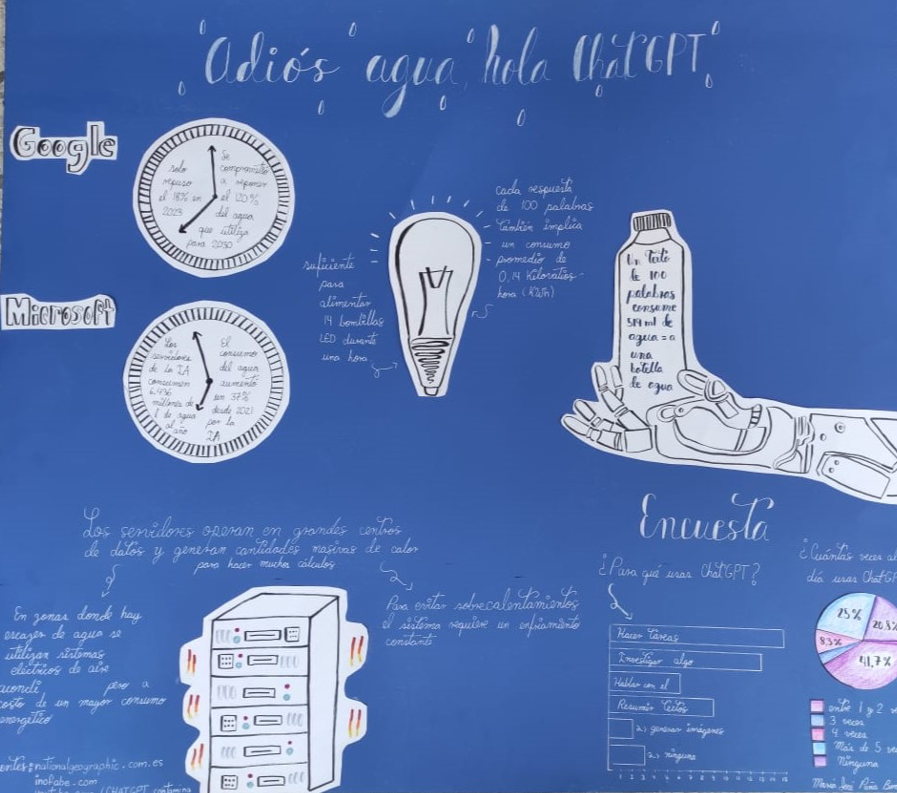 "Adiós" agua, hola ChatGPT
Google
solo
repuso
el 18% en
2023
Se
comprometió
a reponer
el 120%
del agua
que utiliza
para 2030
cada respuesta
de 100 palabras
también implica
un consumo
promedio de
0,14 Kilovatios-
hora (KWh)
suficiente
para
alimentar
14 bombillas
LED durante
una hora
Un texto
de 100
palabras
consume
519 ml de
agua = a
una
botella
de agua
Microsoft
Los
servidores
de la IA
consumen
6.436
millones de
l de agua
al
año
El
consumo
del agua
aumentó
un 37%
desde 2021
por la
IA
Los servidores operan en grandes centros
de datos y generan cantidades masivas de calor
para hacer muchos cálculos
En zonas donde hay
escazes de agua se
utilizan sistemas
eléctricos de aire
acondi pero a
costo de un mayor consumo
energético
Para evitar sobrecalentamientos
el sistema requiere un enfriamiento
constante
Encuesta
¿Para qué usas ChatGPT?
Hacer tareas
Investigar algo
Hablar con el
Resumir textos
generar imágenes
ninguna
1 2 3 4 5 6 7 8 9 10 11 12 13 14 15
¿Cuántas veces al
día usas ChatGP
25%
20,8%
8,3%
41,7%
entre 1 y 2 v
3 veces
4 veces
Más de 5 ve
Ninguna
entes: nationalgeographic.com.es
inofabe.com
María José Peña